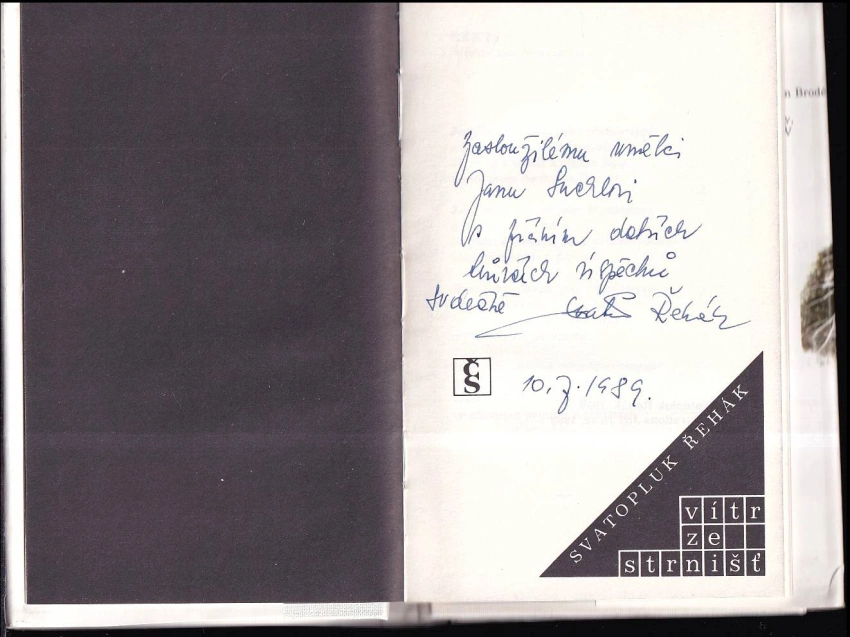 zasloužilému umělci
Janu Suchlovi
s přáním dalších
tvůrčích úspěchů
srdečně Řehák
čs
10.7.1989.
SVATOPLUK ŘEHÁK
vítr
ze
strnišť
n Brodě